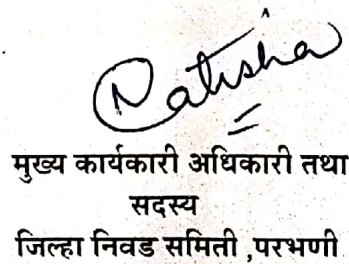 Natisha
मुख्य कार्यकारी अधिकारी तथा
सदस्य
जिल्हा निवड समिती ,परभणी